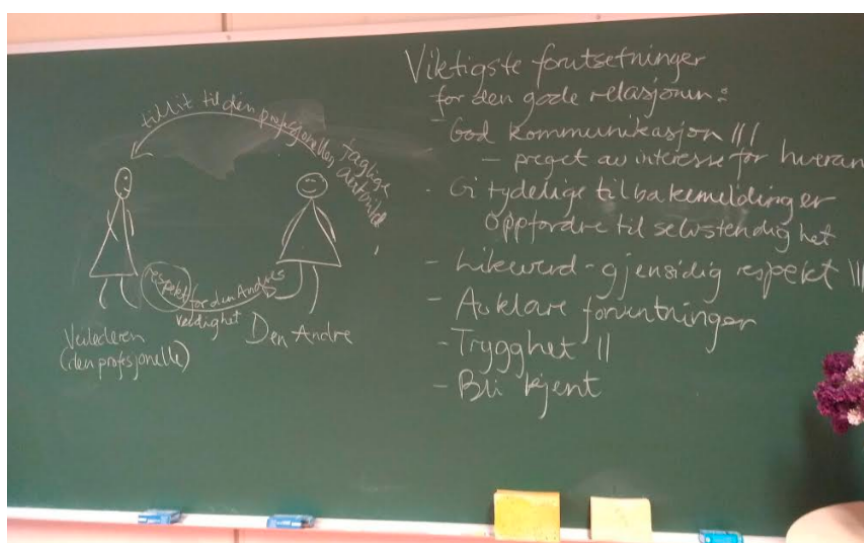 tillit til den profesjonelles faglige autoritet
respekt for den Andres
verdighet
Veilederen
(den profesjonelle)
Den Andre
Viktigste forutsetninger
for den gode relasjonen:
- God kommunikasjon |||
- preget av interesse for hveran
- Gi tydelige tilbakemeldinger
oppfordre til selvstendighet
- Likeverd - gjensidig respekt |||
- Avklare forventninger
- Trygghet ||
- Bli kjent